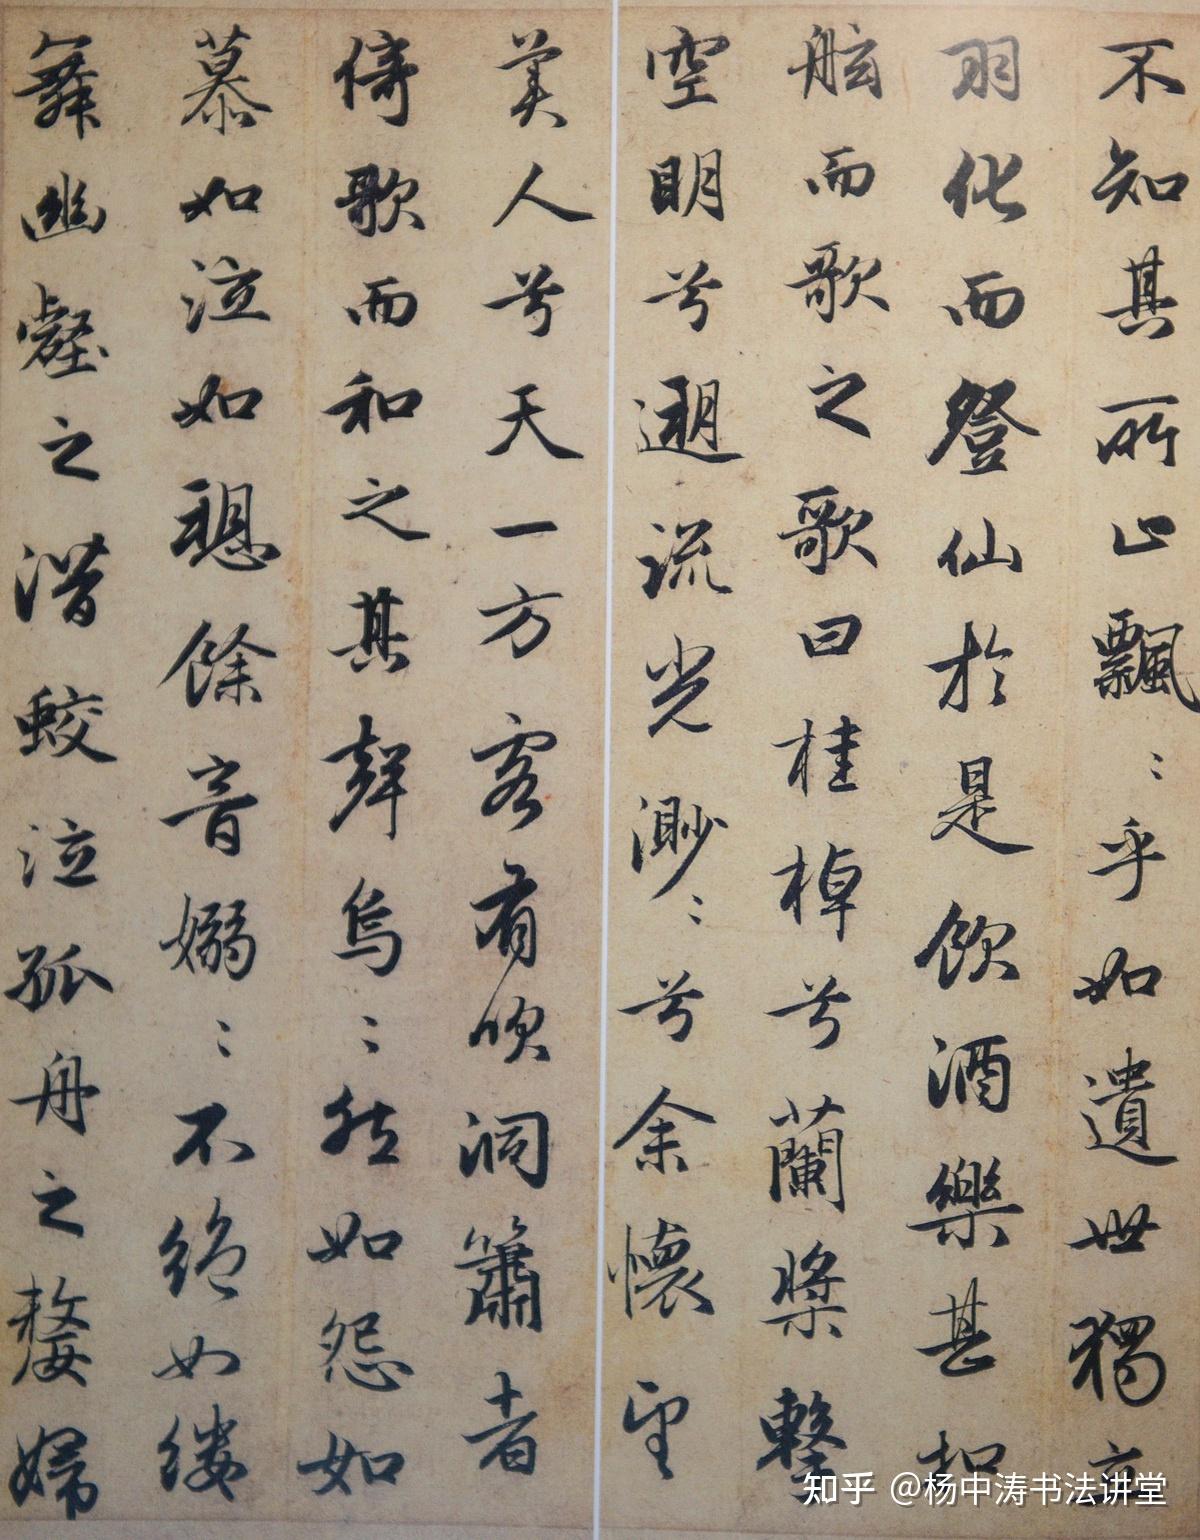 不知其所止飄〻乎如遺世獨立
羽化而登仙於是飲酒樂甚扣
舷而歌之歌曰桂棹兮蘭槳擊
空明兮遡流光渺〻兮余懷望
美人兮天一方客有吹洞簫者
倚歌而和之其聲烏〻然如怨如
慕如泣如聴餘音嫋〻不絕如縷
舞幽壑之潛蛟泣孤舟之嫠婦
知乎 @杨中涛书法讲堂